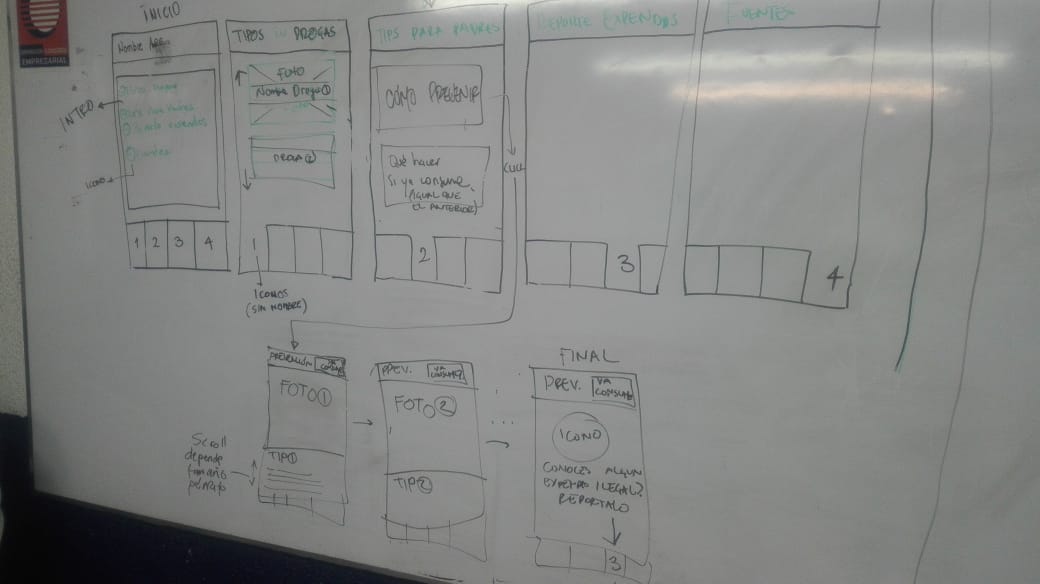 INICIO
Nombre App
INTRO
ICONO
1 2 3 4
TIPOS DE DROGAS
FOTO
Nombre Droga 1
DROGA 2
1
ICONOS
(SIN NOMBRE)
TIPS PARA PADRES
CÓMO PREVENIR
Qué hacer
Si ya consume
(IGUAL QUE
EL ANTERIOR)
2
CLICK
REPORTE EXPENDIOS
3
FUENTES
4
PREVENCIÓN
YA
CONSUME
FOTO 1
TIP 1
Scroll
depende
tamaño
párrafo
PREV.
YA
CONSUME
FOTO 2
TIP 2
...
FINAL
PREV.
YA
CONSUME
ICONO
CONOCES ALGUN
EXPENDIO ILEGAL?
REPORTALO
3
EMPRESARIAL